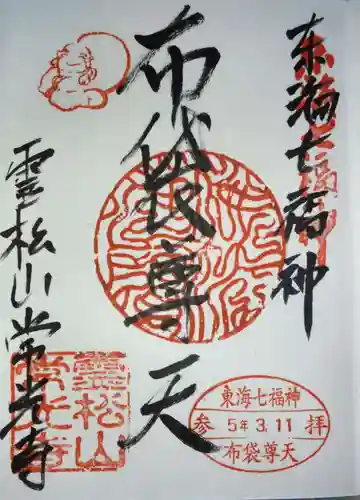 東海七福神
布袋尊天
霊松山常光寺
東海七福神
参 5年3.11 拝
布袋尊天
霊松山
常光寺